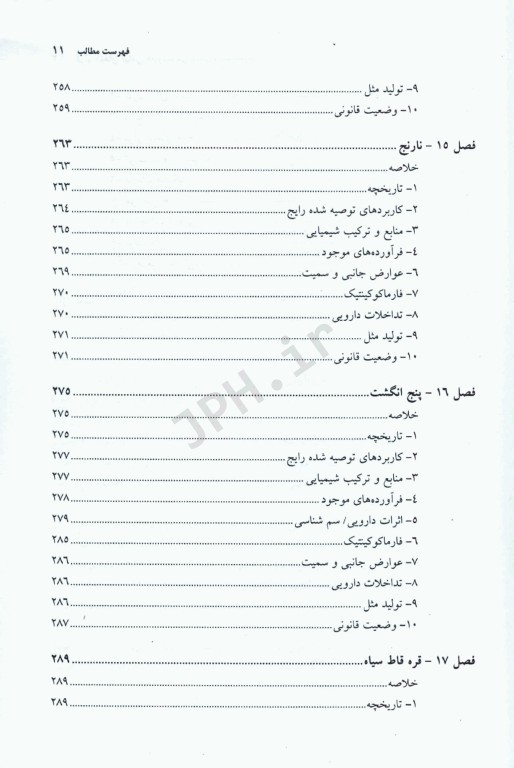 فهرست مطالب ۱۱
۹- تولید مثل ........ ۲۵۸
۱۰- وضعیت قانونی ........ ۲۵۹
فصل ۱۵ - نارنج ........ ۲۶۳
خلاصه ........ ۲۶۳
۱- تاریخچه ........ ۲۶۳
۲- کاربردهای توصیه شده رایج ........ ۲۶۴
۳- منابع و ترکیب شیمیایی ........ ۲۶۵
۴- فرآورده‌های موجود ........ ۲۶۵
۶- عوارض جانبی و سمیت ........ ۲۶۹
۷- فارماکوکینتیک ........ ۲۷۰
۸- تداخلات دارویی ........ ۲۷۰
۹- تولید مثل ........ ۲۷۱
۱۰- وضعیت قانونی ........ ۲۷۱
فصل ۱۶ - پنج انگشت ........ ۲۷۵
خلاصه ........ ۲۷۵
۱- تاریخچه ........ ۲۷۵
۲- کاربردهای توصیه شده رایج ........ ۲۷۷
۳- منابع و ترکیب شیمیایی ........ ۲۷۷
۴- فرآورده‌های موجود ........ ۲۷۸
۵- اثرات دارویی/ سم شناسی ........ ۲۷۹
۶- فارماکوکینتیک ........ ۲۸۵
۷- عوارض جانبی و سمیت ........ ۲۸۶
۸- تداخلات دارویی ........ ۲۸۶
۹- تولید مثل ........ ۲۸۶
۱۰- وضعیت قانونی ........ ۲۸۷
فصل ۱۷ - قره قاط سیاه ........ ۲۸۹
خلاصه ........ ۲۸۹
۱- تاریخچه ........ ۲۸۹
JPH.ir